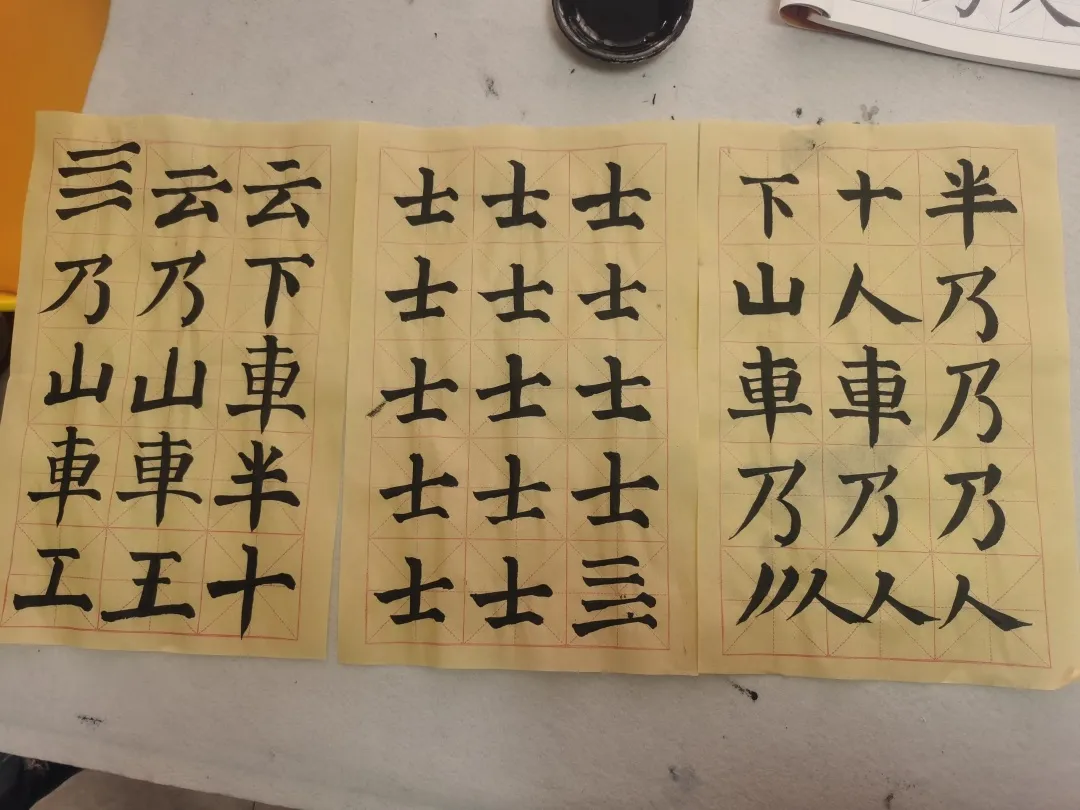 云云
乃乃下
山山車
車車半
工王十
士士士
士士士
士士士
士士士
士士
下十半
山人乃
車車乃
乃乃乃
人人人